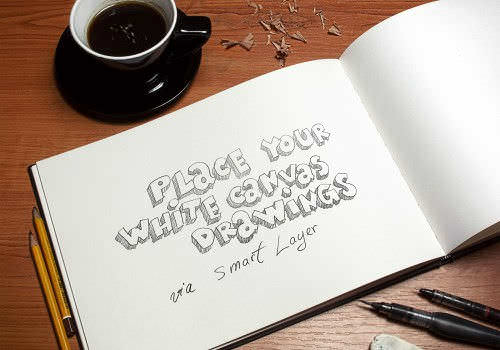 PLACE YOUR
WHITE CANVAS
DRAWINGS
via Smart Layer